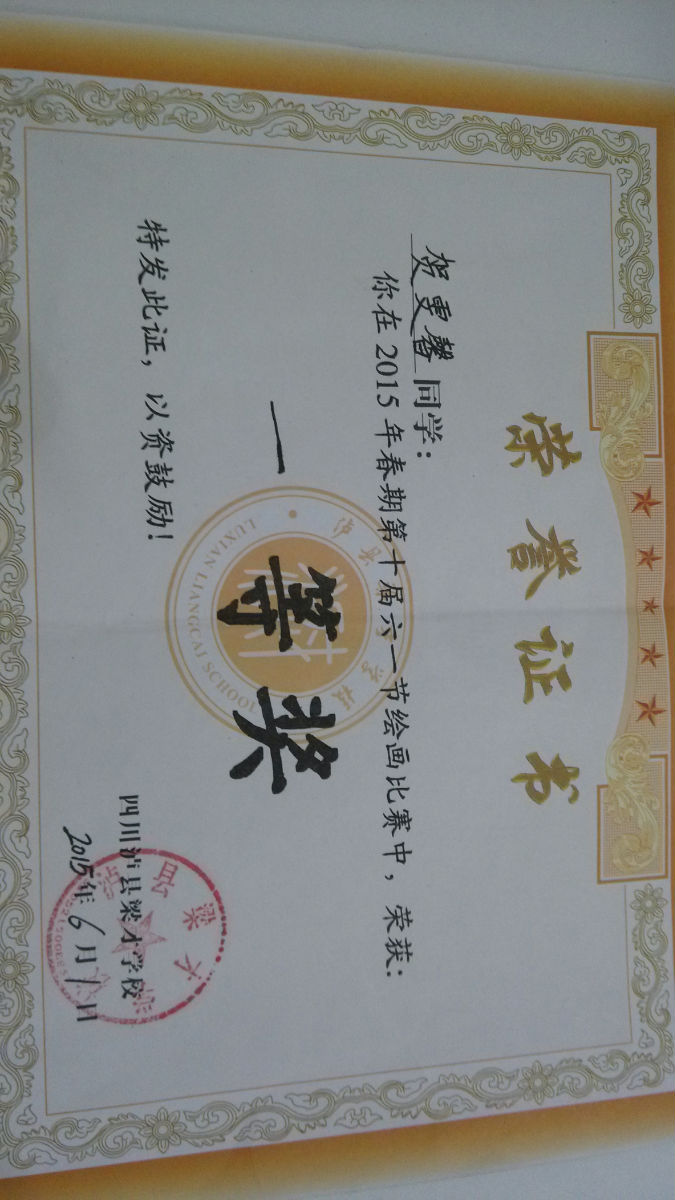 荣誉证书
贺雯馨同学：
你在2015年春期第十届六一节绘画比赛中，荣获：
一等奖
特发此证，以资鼓励！
四川泸县梁才学校
2015年6月1日
LUXIAN LIANGCAI SCHOOL